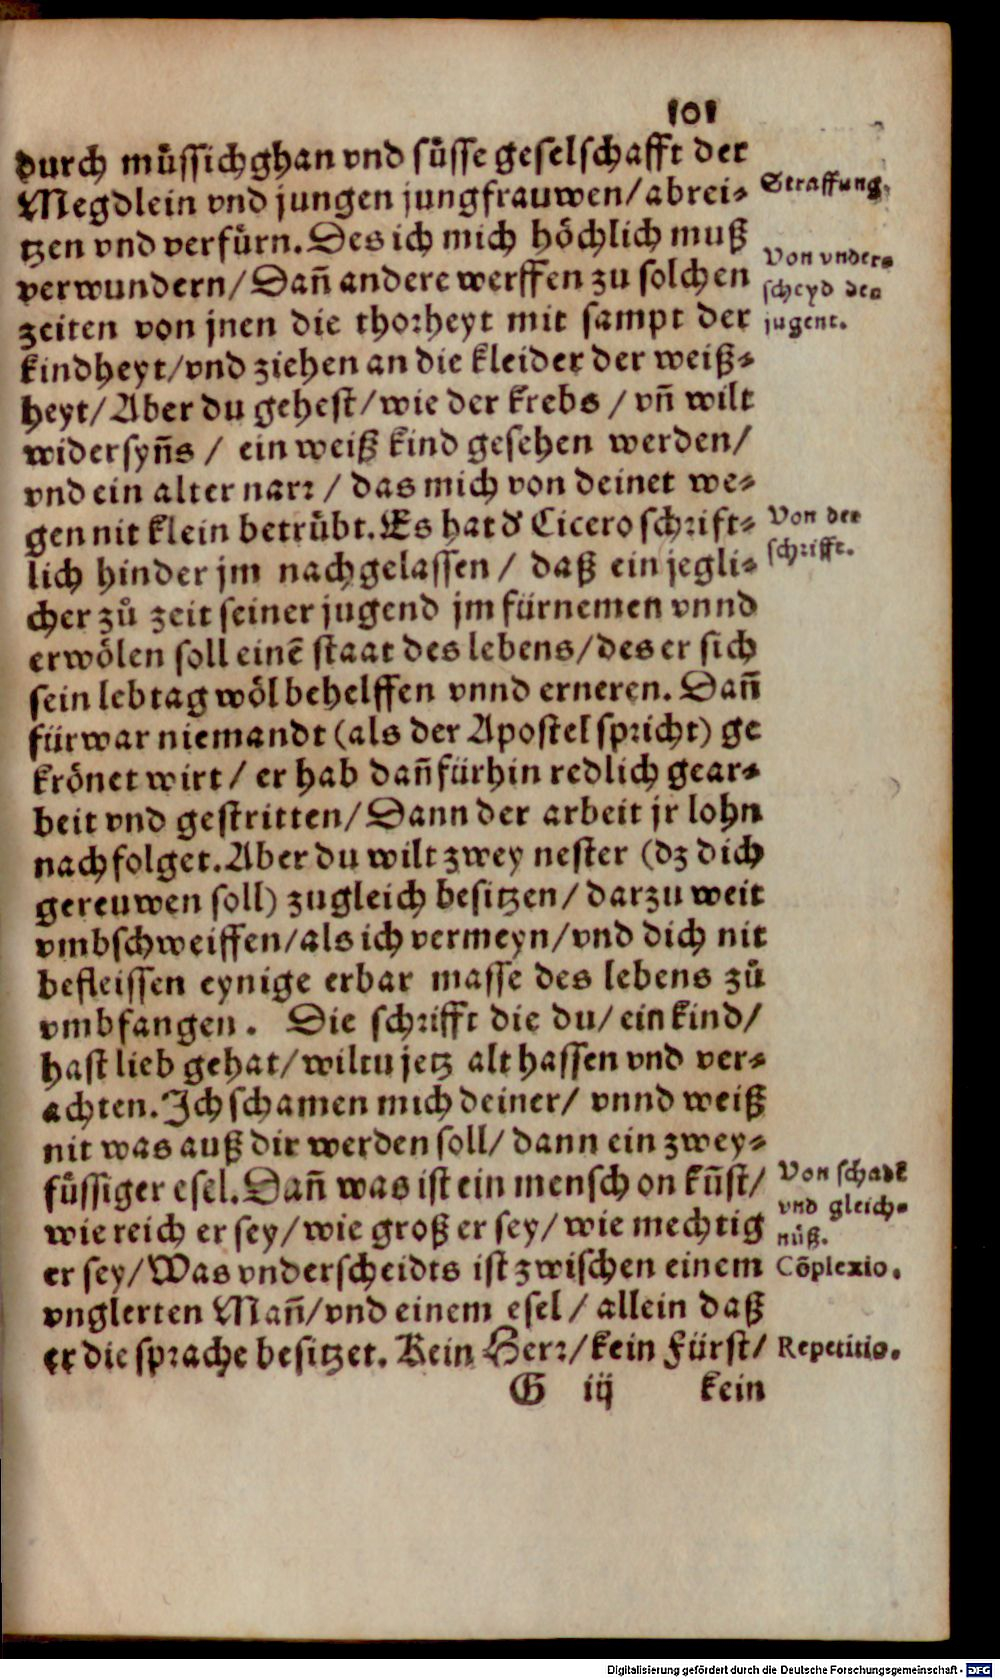 101
durch müssichghan vnd süsse geselschafft der
Megdlein vnd jungen jungfrauwen/ abrei-
tzen vnd verfürn. Des ich mich höchlich muß
verwundern/ Dañ andere werffen zu solchen
zeiten von jnen die thorheyt mit sampt der
kindheyt/ vnd ziehen an die kleider der weiß-
heyt/ Aber du gehest/ wie der krebs / vñ wilt
widersyñs / ein weiß kind gesehen werden/
vnd ein alter narr / das mich von deinet we-
gen nit klein betrübt. Es hat d' Cicero schrift-
lich hinder jm nachgelassen / daß ein jegli-
cher zů zeit seiner jugend jm fürnemen vnnd
erwölen soll einē staat des lebens/ des er sich
sein lebtag wöl behelffen vnnd erneren. Dañ
fürwar niemandt (als der Apostel spricht) ge
krönet wirt / er hab dañ fürhin redlich gear-
beit vnd gestritten/ Dann der arbeit jr lohn
nachfolget. Aber du wilt zwey nester (dz dich
gereuwen soll) zugleich besitzen/ darzu weit
vmbschweiffen/ als ich vermeyn/ vnd dich nit
befleissen eynige erbar masse des lebens zů
vmbfangen. Die schrifft die du/ ein kind/
hast lieb gehat/ wiltu jetz alt hassen vnd ver-
achten. Ich schamen mich deiner/ vnnd weiß
nit was auß dir werden soll/ dann ein zwey-
füssiger esel. Dañ was ist ein mensch on kũst/
wie reich er sey/ wie groß er sey/ wie mechtig
er sey/ Was vnderscheidts ist zwischen einem
vnglerten Mañ/ vnd einem esel / allein daß
er die sprache besitzet. Kein Herr/ kein Fürst/
G iij kein
Straffung.
Von vnder-
scheyd der
jugent.
Von der
schrifft.
Von schad
vnd gleich-
nüß.
Cõplexio.
Repetitio.
Digitalisierung gefördert durch die Deutsche Forschungsgemeinschaft - DFG